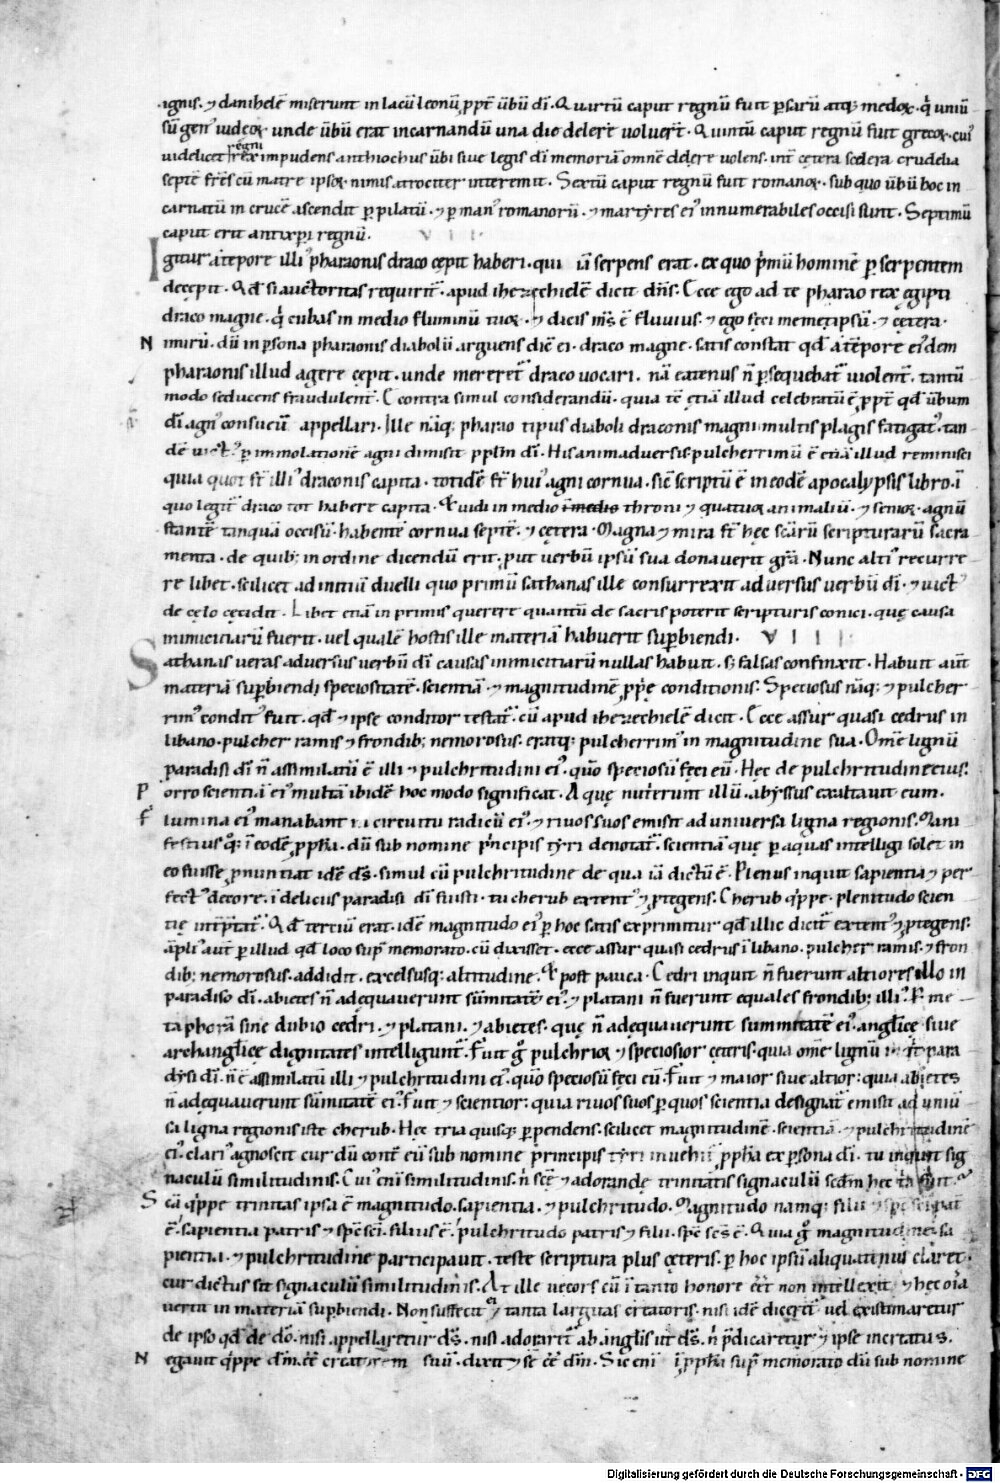 ignis. ⁊ danihelē miserunt in lacū leonū ꝓpt̄ ūbū dī. Quartū caput regnū fuit ꝑsarū atq; medoꝝ. q̇ uniū
sū gen᷒ iudęoꝝ. unde ūbū erat incarnandū una die delere voluer̄t. Quintū caput regnū fuit grecoꝝ. cui᷒
videlicet regni rex impudens anthiochus ūbi sive legis dī memoriā omnē delere volens. int̄ cętera scelera crudelia
septē fr̄es cū matre ipsoꝝ nimis atrociter interemit. Sextū caput regnū fuit romanoꝝ. sub quo ūbū hoc in
carnatū in crucē ascendit ꝑ pilatū. ⁊ ꝑ man᷒ romanorū. ⁊ martyres ei᷒ innumerabiles occisi sunt. Septimū
caput erit antixp̄i regnū. VII
Igitur a tēpore illi᷒ pharaonis draco cępit haberi. qui iā serpens erat. ex quo p̄mū hominē ꝑ serpentem
decepit. Qd̄ si auctoritas requirit᷑. apud ihezechielē dicit dn̄s. Ecce ego ad te pharao rex egipti
draco magne. q̇ cubas in medio fluminū tuoꝝ. ⁊ dicis m̄s ē fluvius. ⁊ ego feci memetipsū. ⁊ cętera.
Nimirū. dū in ꝑsona pharaonis diabolū arguens dic̄ ei. draco magne. satis constat qd̄ a tēpore ei᷒dem
pharaonis illud agere cępit. unde mereret᷑ draco vocari. nā eatenus n̄ ꝑsequebat᷑ violent᷑. tantū
modo seducens fraudulent᷑. Econtra simul considerandū. quia tc̄ etiā illud celebratū ē ꝓpt̄ qd̄ ūbum
dī agn᷒ consuevit appellari. Ille nāq; pharao tipus diaboli draconis magni multis plagis fatigat᷒. tan
dē vict᷒ ꝑ immolationē agni dimisit pplm̄ dī. His animadversis pulcherrimū ē etiā illud reminisci
quia quot st̄ illi᷒ draconis capita. totidē st̄ hui᷒ agni cornua. sic̄ scriptū ē in eodē apocalypsis libro. ī
quo legit᷑ draco tot habere capita. Et vidi in medio throni ⁊ quatuor animaliū. ⁊ senioꝝ. agnū
stantē tanquā occisū. habentē cornua septē. ⁊ cętera. Magna ⁊ mira st̄ hęc scārū scripturarū sacra
menta. de quib; in ordine dicendū erit. put verbū ipsū sua donaverit gr̄a. Nunc alti᷒ recurre
re libet. scilicet ad initiū duelli quo primū sathanas ille consurrexit adversus verbū dī. ⁊ vict᷒
de cęlo cecidit. Libet etiā in primis querere quantū de sacris poterit scripturis conici. quę causa
inimicitiarū fuerit. vel qualē hostis ille materiā habuerit supbiendi. VIII
Sathanas veras adversus verbū dī causas inimicitiarū nullas habuit. s; falsas confinxit. Habuit aūt
materiā supbiendi speciositatē. scientiā. ⁊ magnitudinē ꝓprię conditionis. Speciosus nāq; ⁊ pulcher
rim᷒ condit᷒ fuit. qd̄ ⁊ ipse conditor testat᷑. cū apud ihezechielē dicit. Ecce assur quasi cedrus in
libano. pulcher ramis ⁊ frondib; nemorosus. eratq; pulcherrim᷒ in magnitudine sua. Om̄e lignū
paradisi dī n̄ assimilatū ē illi ⁊ pulchritudini ei᷒. quō speciosū feci eū. Hęc de pulchritudine eius.
Porro scientiā ei᷒ multā ibidē hoc modo significat. Aquę nutrierunt illū. abyssus exaltavit eum.
Flumina ei᷒ manabant in circuitu radicū ei᷒. ⁊ rivos suos emisit ad universa ligna regionis. Mani
festius q; ī eodē ꝓpha. dū sub nomine p̄ncipis tyri denotat᷑. scientiā quę ꝑ aquas intelligi solet in
eo fuisse ꝓnuntiat idē ds̄. simul cū pulchritudine de qua iā dictū ē. Plenus inquit sapientia ⁊ per
fect᷒ decore. ī deliciis paradisi dī fuisti. tu cherub extent᷒ ⁊ ꝓtegens. Cherub q̇ppe. plenitudo scien
tię int̄ptat᷑. Qd̄ tertiū erat. idē magnitudo ei᷒ ꝑ hoc satis exprimitur qd̄ illic dicit᷑ extent᷒ ⁊ ꝓtegens.
āpli᷒ aūt ꝑ illud qd̄ loco sup᷑ memorato. cū dixisset. ecce assur quasi cedrus ī libano. pulcher ramis. ⁊ fron
dib; nemorosus. addidit. excelsusq; altitudine. Et post pauca. Cedri inquit n̄ fuerunt altiores illo in
paradiso dī. abietes n̄ adęquaverunt sūmitatē ei᷒. ⁊ platani n̄ fuerunt equales frondib; illi᷒. Per me
taphorā sine dubio cedri. ⁊ platani. ⁊ abietes. quę n̄ adęquaverunt summitatē ei᷒. anglicę sive
archanglicę dignitates intelligunt᷑. Fuit g̊ pulchrior ⁊ speciosior cęteris. quia om̄e lignū para
dysi dī. n̄ ē assimilatū illi ⁊ pulchritudini ei᷒. quō speciosū feci eū. Fuit ⁊ maior sive altior: quia abietes
n̄ adęquaverunt sūmitatē ei᷒. Fuit ⁊ scientior: quia rivos suos ꝑ quos scientia designat᷑ emisit ad univ̄
sa ligna regionis iste cherub. Hęc tria quisq; ꝑpendens. scilicet magnitudinē. scientiā. ⁊ pulchritudinē
ei᷒. clari᷒ agnoscit cur dū cont̄ eū sub nomine principis tyri invehit᷑ ꝓpha ex ꝑsona dī. tu inquit sig
naculū similitudinis. Cui᷒ eni similitudinis. n̄ scę ⁊ adorandę trinitatis signaculū scdm̄ hęc tria fuit.
Scā q̇ppe trinitas ipsa ē magnitudo. sapientia. ⁊ pulchritudo. Magnitudo namq; filii ⁊ spc̄ sci pat̄
ē. sapientia patris ⁊ spc̄ sci. filius ē. pulchritudo patris ⁊ filii. spc̄ scs̄ ē. Quia g̊ magnitudinē. sa
pientiā. ⁊ pulchritudinē participavit. teste scriptura plus cęteris. ꝑ hoc ipsū aliquatinus claret.
cur dictus sit signaculū similitudinis. At ille vecors cū ī tanto honore eēt non intellexit. ⁊ hęc oīa
vertit in materiā supbiendi. Non suffecit ei ⁊ tanta largitas creatoris. nisi idē diceret᷑ vel existimaretur
de ipso qd̄ de dō. nisi appellaretur ds̄. nisi adorarit᷑ ab anglis ut ds̄. n̄ p̄dicaretur ⁊ ipse increatus.
Negavit q̇ppe dm̄ eē creatorem suū. dixit ⁊ se eē dm̄. Sic eni ī ꝓpha sup᷑ memorato dū sub nomine
Digitalisierung gefördert durch die Deutsche Forschungsgemeinschaft - DFG